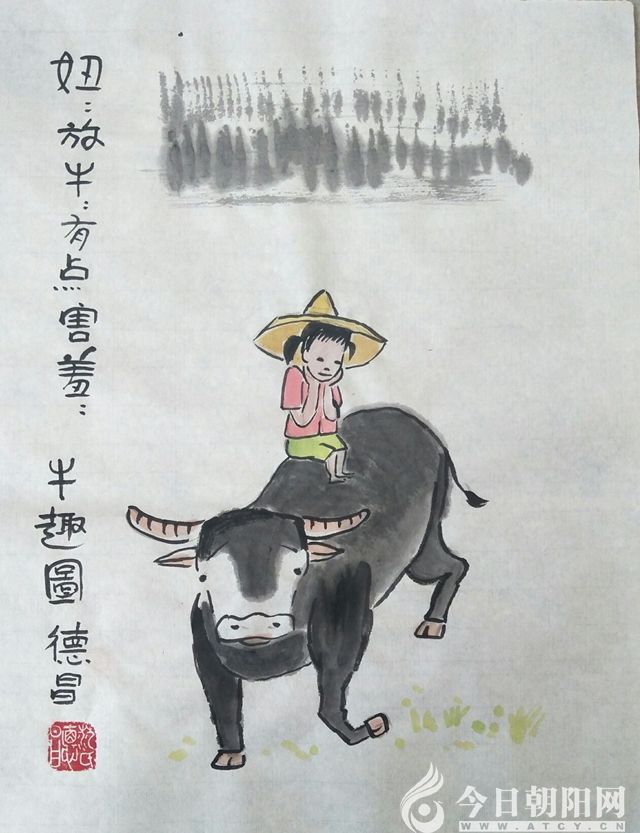 妞：放牛：有点害羞：
牛趣圖 德昌
今日朝阳网
WWW.ATCY.CN